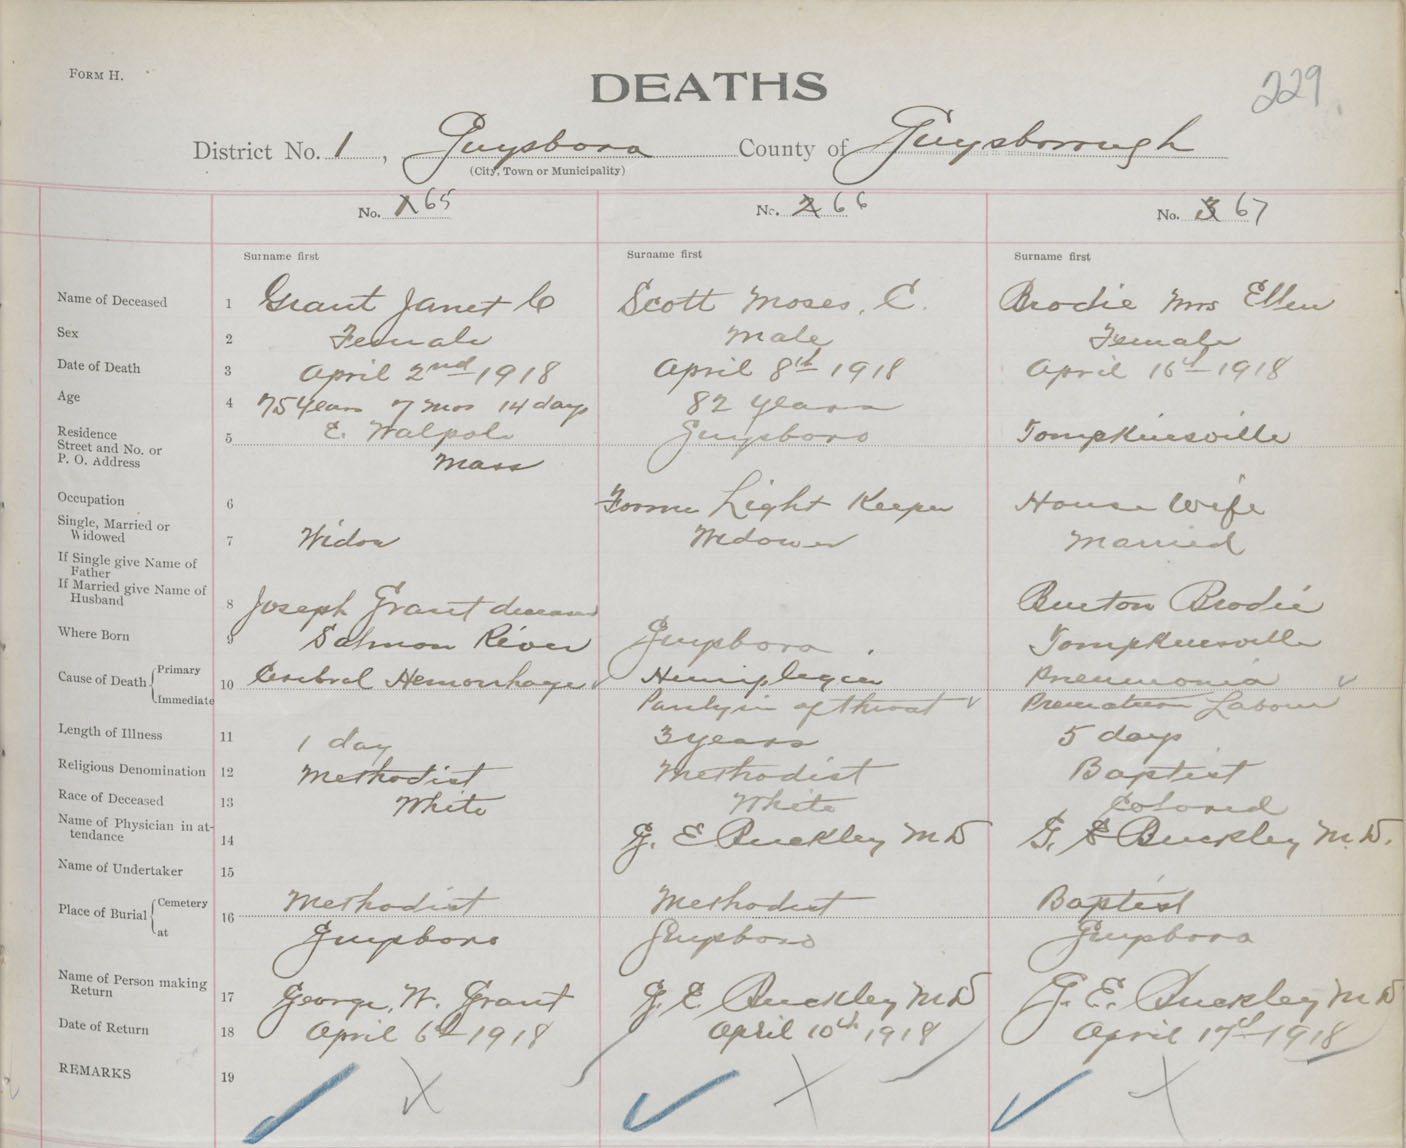 FORM H.
DEATHS
229
District No. 1, Guysboro County of Guysborough
(City, Town or Municipality)
No. 1 65 No. 2 66 No. 3 67
Surname first Surname first Surname first
Name of Deceased 1 Grant Janet C Scott Moses. C. Brodie Mrs Ellen
Sex 2 Female Male Female
Date of Death 3 April 2nd 1918 April 8th 1918 April 16th 1918
Age 4 75 Years 7 mos 14 days 82 Years
Residence
Street and No. or
P. O. Address 5 E. Walpole Guysboro Tompkinsville
Mass
Occupation 6 Former Light Keeper House Wife
Single, Married or
Widowed 7 Widow Widower Married
If Single give Name of
Father
If Married give Name of
Husband 8 Joseph Grant deceased Burton Brodie
Where Born 9 Salmon River Guysboro Tompkinsville
Cause of Death Primary 10 Cerebral Hemorrhage Hemiplegia Pneumonia
Immediate Paralysis of throat Premature Labour
Length of Illness 11 1 day 3 years 5 days
Religious Denomination 12 Methodist Methodist Baptist
Race of Deceased 13 White White Colored
Name of Physician in at-
tendance 14 G. E Buckley M D G. E Buckley M. D.
Name of Undertaker 15
Place of Burial Cemetery 16 Methodist Methodist Baptist
at Guysboro Guysboro Guysboro
Name of Person making
Return 17 George. W. Grant G. E Buckley M D G. E. Buckley M D
Date of Return 18 April 6th 1918 April 10th 1918 April 17th 1918
REMARKS 19